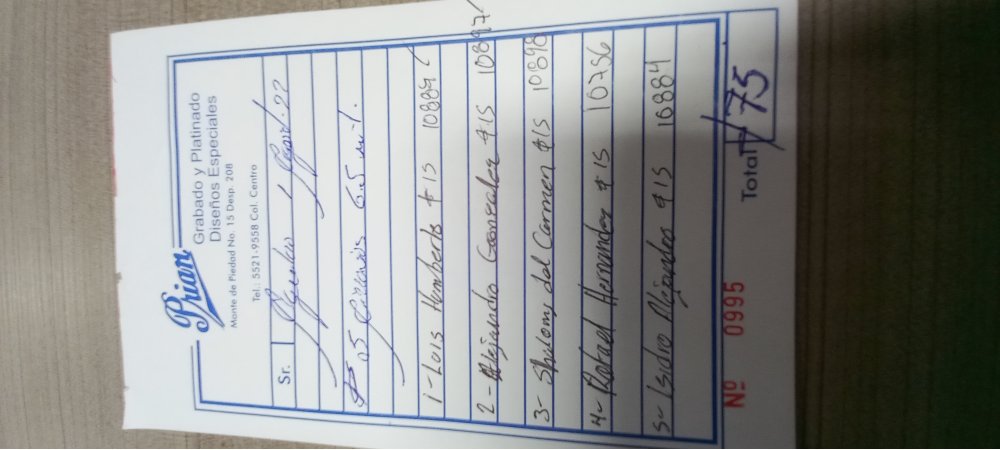 Prian
Grabado y Platinado
Diseños Especiales
Monte de Piedad No. 15 Desp. 208
Tel.: 5521-9558 Col. Centro
Sr.
05 6.5
1- Luis Humberto $15 10889
2- Alejandro Gonzalez $15 10897
3- Shulomy del Carmen $15 10898
4- Rafael Hernandez $15 10756
5- Isidro Alejandro $15 10884
Nº 0995 Total 75